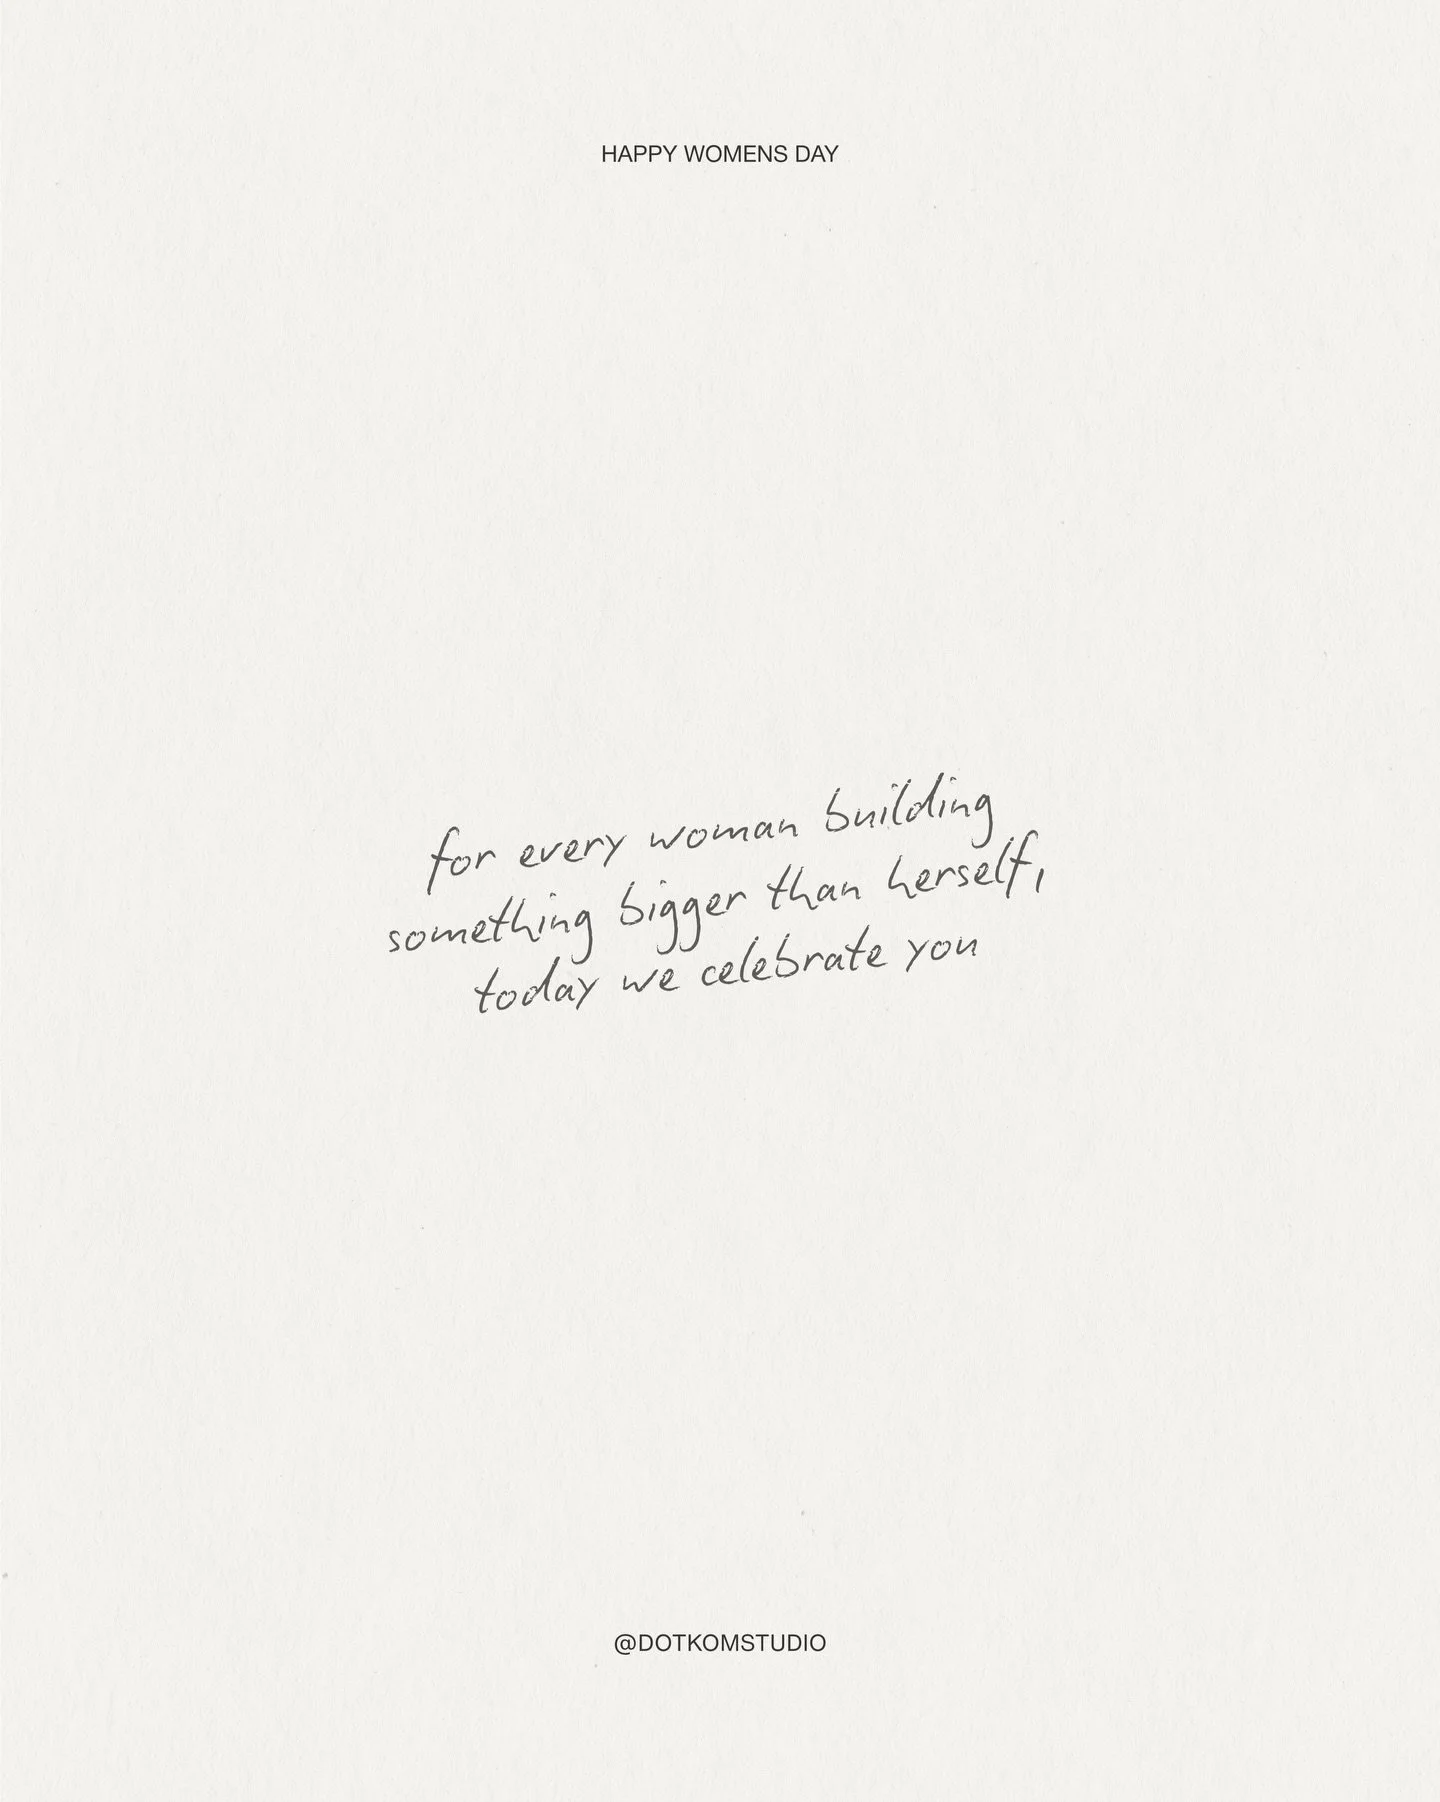 HAPPY WOMENS DAY
for every woman building
something bigger than herself,
today we celebrate you
@DOTKOMSTUDIO